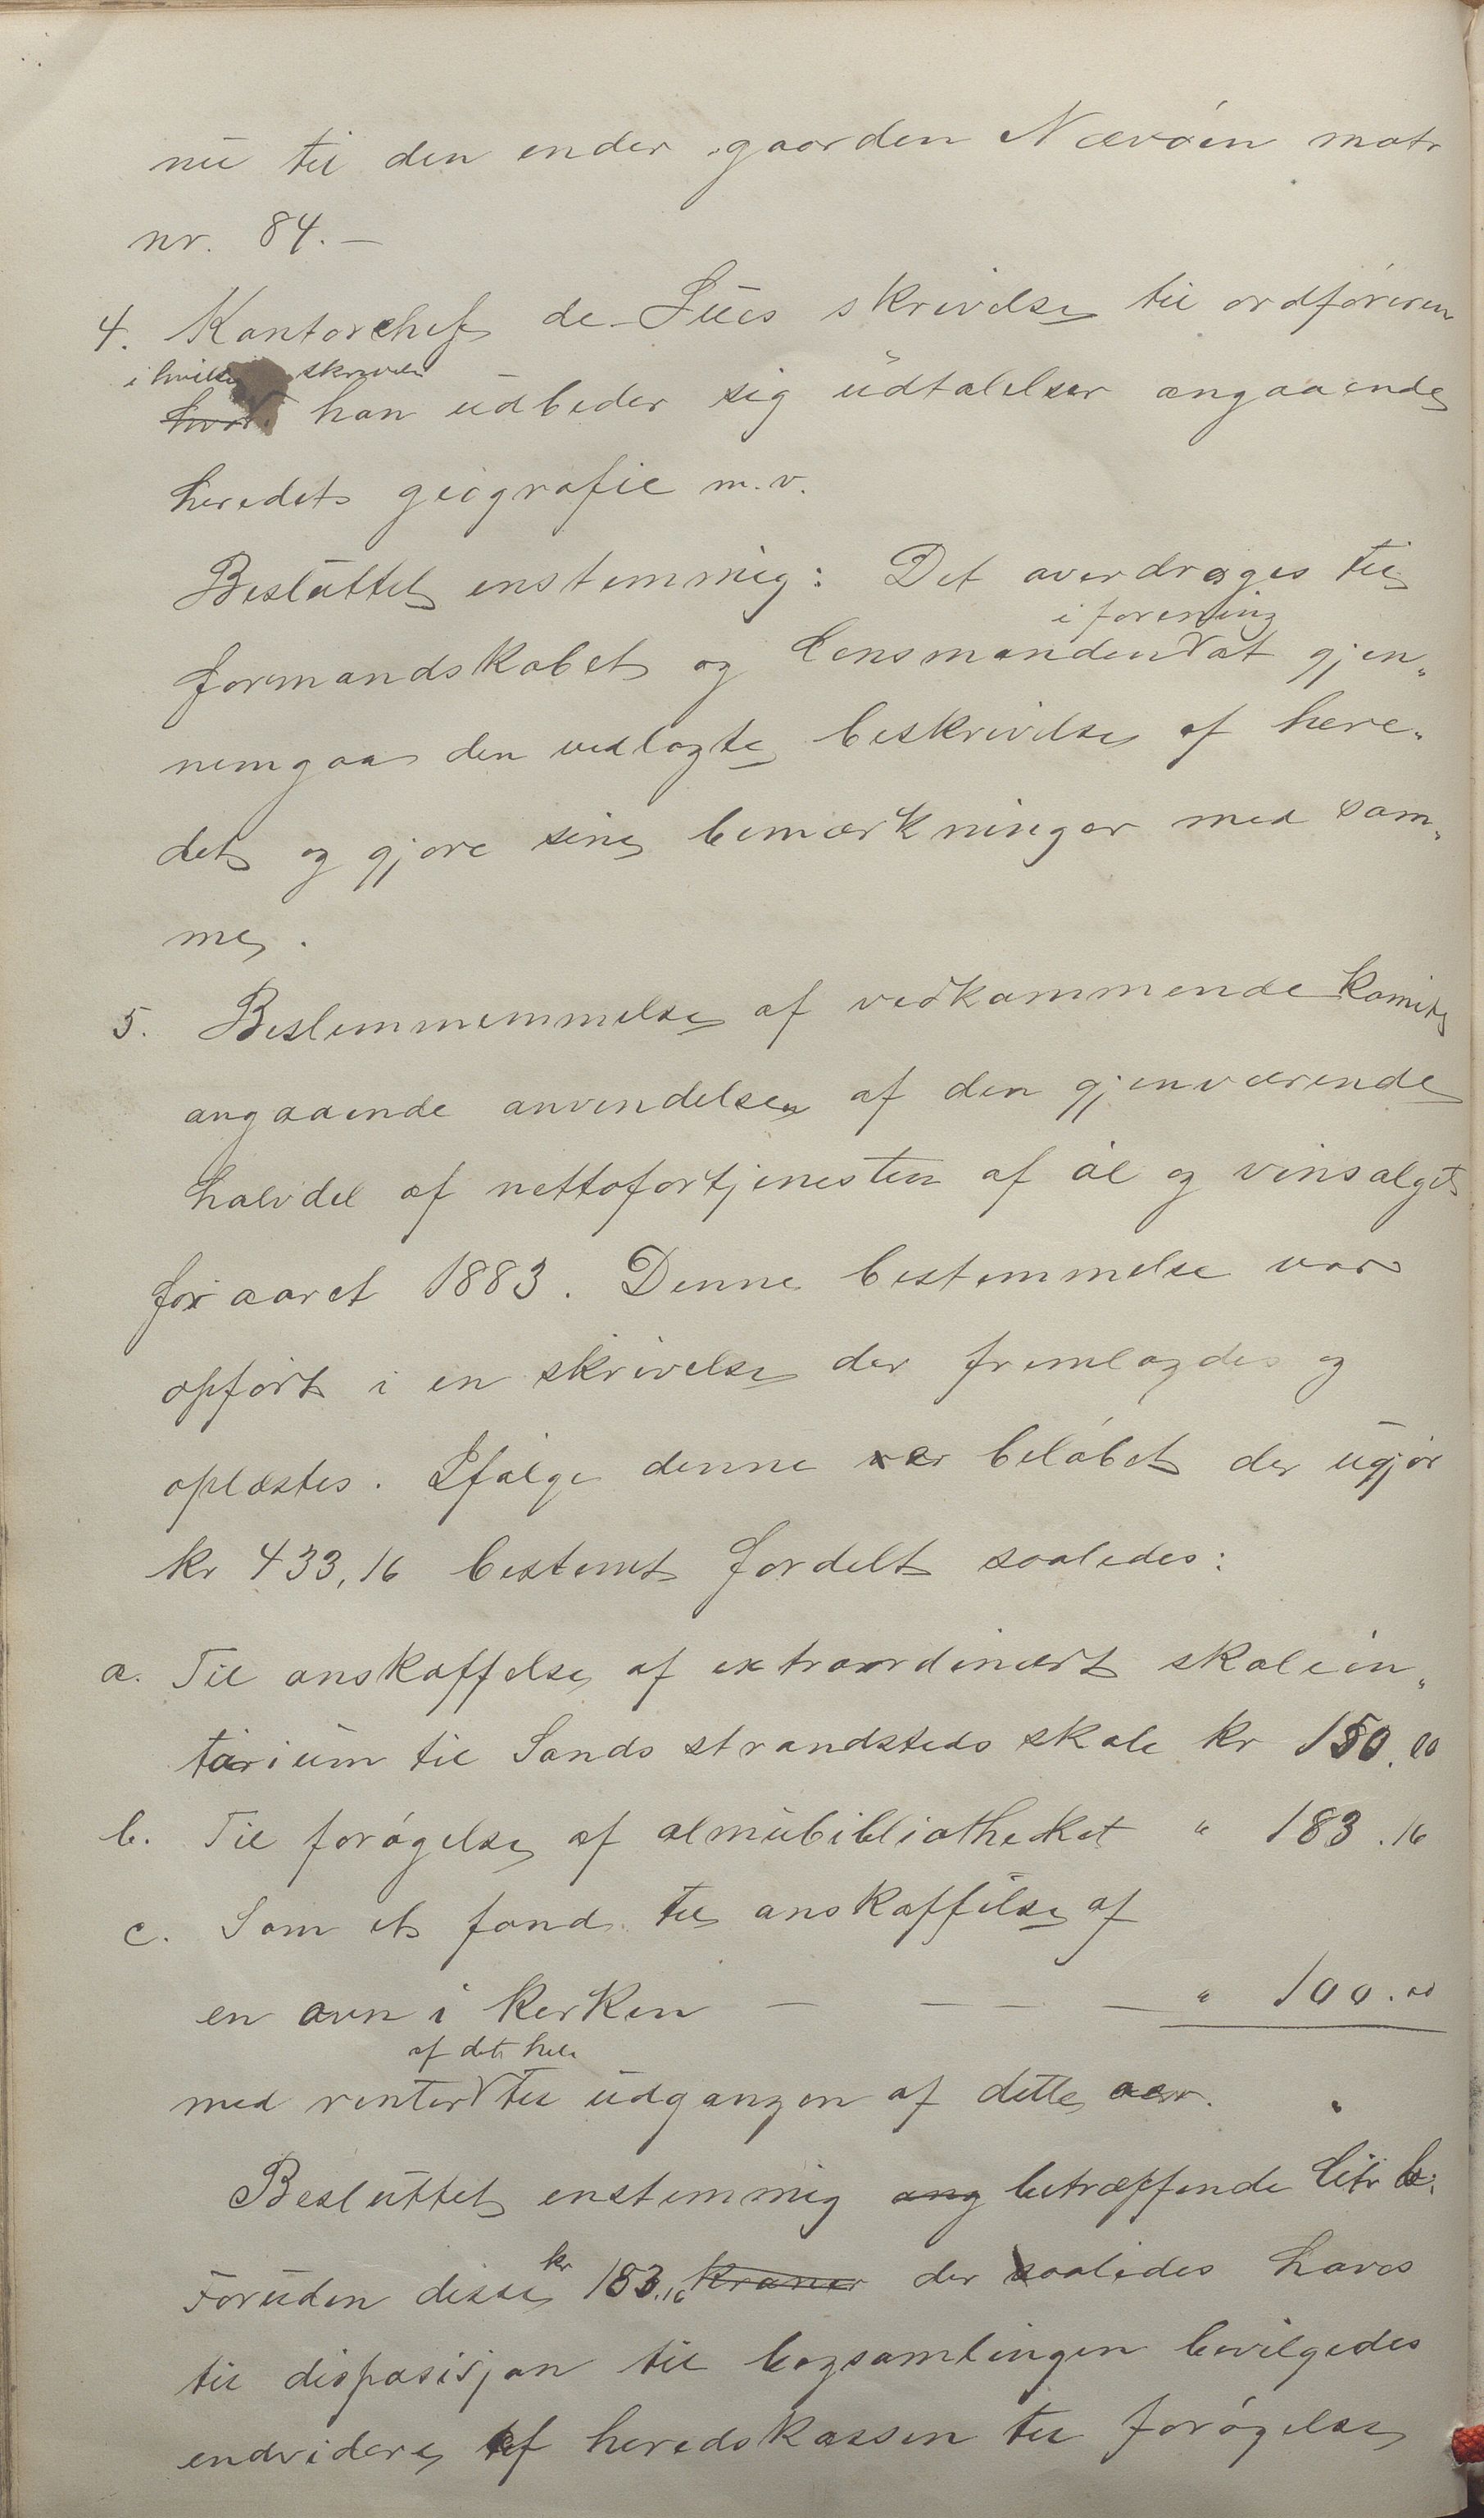 nu til den ender gaarden Nævöen matr
nr. 84. —
4. Kontorchef de Lües skrivelse til ordföreren
i hvilken skrivelse
hvori han udbeder sig udtalelser angaaende
heredets geografie m.v.
Besluttet enstemmig: Det overdrages til
i forening
formandskabet og lensmanden at gjen„
nemgaa den vedlagte beskrivelse af here„
det og gjøre sine bemærkninger med sam„
me.
5. Beslemmemmelse af vedkommende komite
angaaende anvendelsen af den gjenværende
halvdel af nettofortjenesten af öl og vinsalget
for aaret 1883. Denne bestemmelse var
opfört i en skrivelse der fremlagdes og
oplæstes. Ifölge denne er belöbet der ugjör
kr 433,16 bestemt fordelt saaledes:
a. Til anskaffelse af extraordinært skolein„
tarium til Sands strandsteds skole kr 150.00
b. Til forögelse af almubibliotheket " 183.16
c. Som et fond til anskaffelse af
en ovn i kerken — — — — " 100.00
af det hele
med renter til udgangen af dette aar. "
Besluttet enstemmig ang betræffende litr b.
kr
Foruden disse 183.16 kroner der saaledes haves
til disposisjon til bogsamlingen bevilgedes
endvidere af heredskassen til forögelse